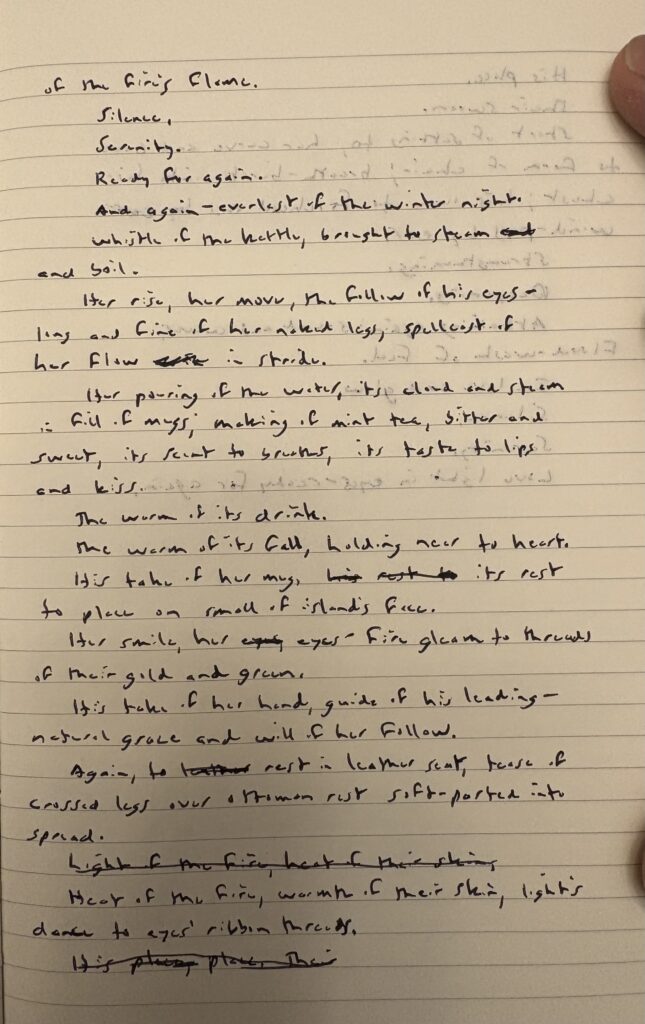 of the fire's flame.
Silence.
Serenity.
Ready for again.
And again - everlast of the winter night.
Whistle of the kettle, brought to steam and
and boil.
Her rise, her move, the follow of his eyes -
long and fine of her naked legs, spellcast of
her flow in stride.
Her pouring of the water, its cloud and steam
in fill of mugs; making of mint tea, bitter and
sweet, its scent to breaths, its taste to lips
and kiss.
The warm of its drink.
The warm of its fall, holding near to heart.
His take of her mug, his rest to its rest
to place on small of island's face.
Her smile, her eyes, eyes - fire gleam to threads
of their gold and green.
His take of her hand, guide of his leading -
natural grace and will of her follow.
Again, to leather rest in leather seat, tease of
crossed legs over ottoman rest soft-parted into
spread.
Light of the fire, heat of their skin,
Heat of the fire, warmth of their skin, light's
dance to eyes' ribbon threads.
His place, place, Their